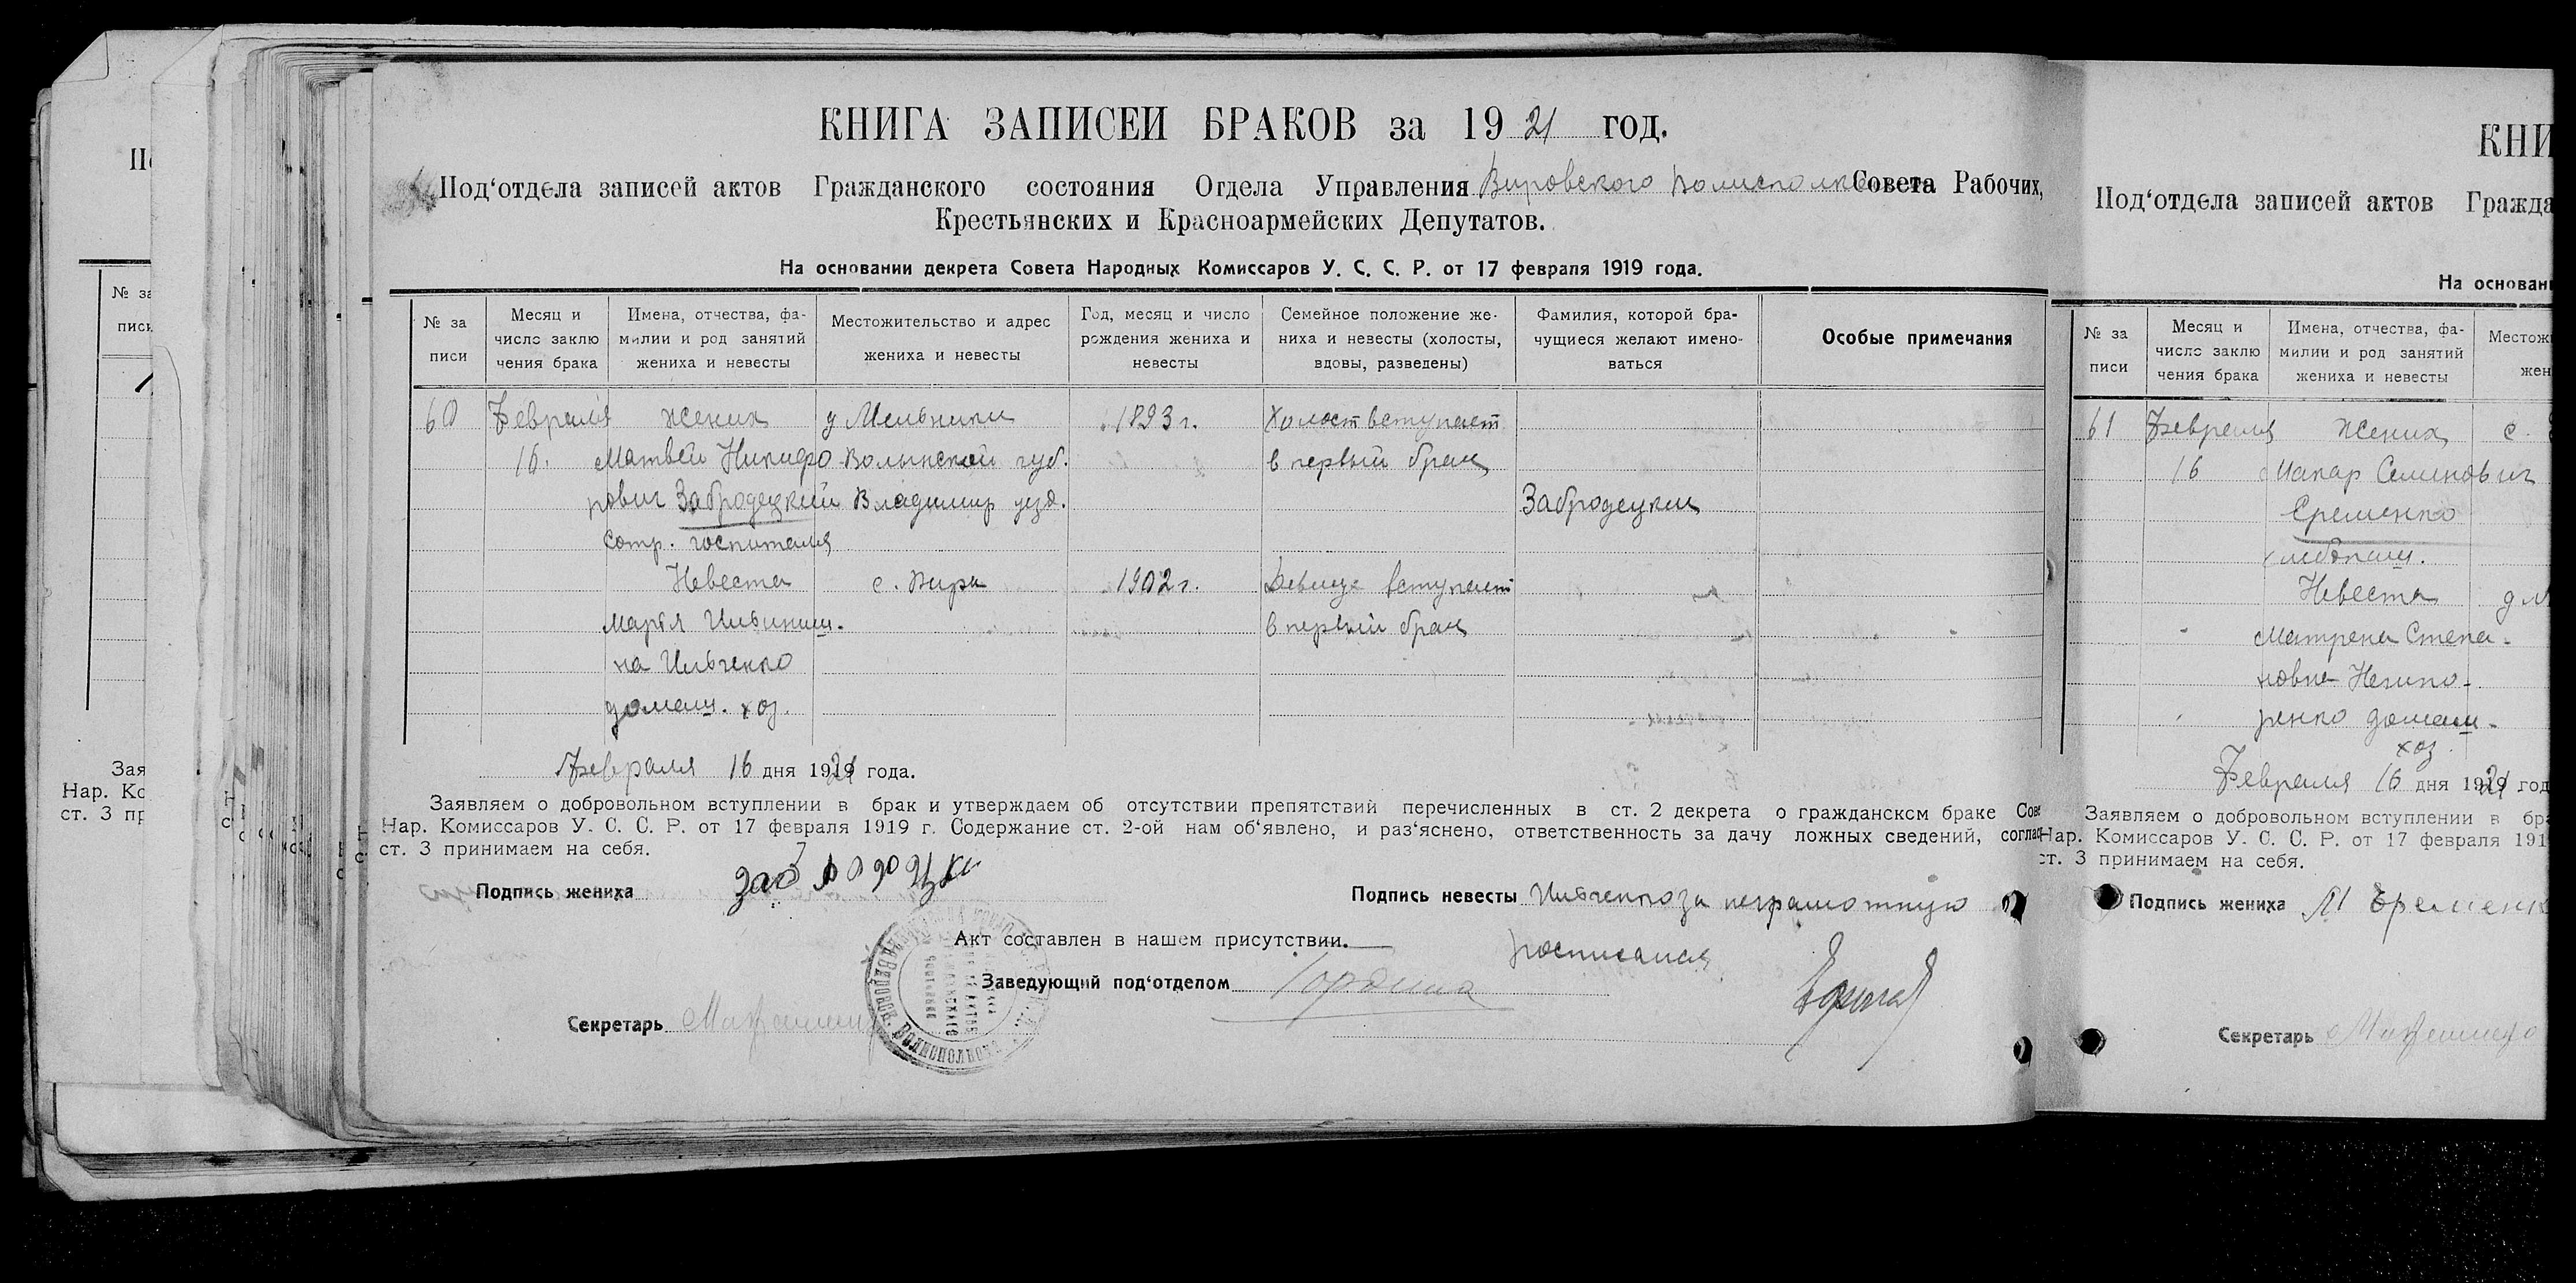 КНИГА ЗАПИСЕЙ БРАКОВ за 1921 год.
Под‘отдела записей актов Гражданского состояния Отдела Управления Вировского Волисполкома Совета Рабочих,
Крестьянских и Красноармейских Депутатов.
На основании декрета Совета Народных Комиссаров У. С. С. Р. от 17 февраля 1919 года.
№ за
писи
Месяц и
число заклю
чения брака
Имена, отчества, фа-
милии и род занятий
жениха и невесты
Местожительство и адрес
жениха и невесты
Год, месяц и число
рождения жениха и
невесты
Семейное положение же-
ниха и невесты (холосты,
вдовы, разведены)
Фамилия, которой бра-
чущиеся желают имено-
ваться
Особые примечания
60 Февраля жених д Мельники 1893 г. холост вступает
16. Матвей Никифо Волынской губ. в первый брак
рович Забродецкий Владимир уезд. Забродецкий
сотр. госпиталя
Невеста с. Виры 1902 г. Девица вступает
Мария Ильиниш- в первый брак
на Ильченко
домаш. хоз.
Февраля 16 дня 1921 года.
Заявляем о добровольном вступлении в брак и утверждаем об отсутствии препятствий перечисленных в ст. 2 декрета о гражданском браке Сове
Нар. Комиссаров У. С. С. Р. от 17 февраля 1919 г. Содержание ст. 2-ой нам об‘явлено, и раз‘яснено, ответственность за дачу ложных сведений, соглас
ст. 3 принимаем на себя.
Подпись жениха
Подпись невесты Ильченко за неграмотную
росписался
Акт составлен в нашем присутствии.
Заведующий под‘отделом
Секретарь
КНИ
Под‘отдела записей актов Гражда
На основани
№ за
писи
Месяц и
число заклю
чения брака
Имена, отчества, фа-
милии и род занятий
жениха и невесты
Местож
жен
61 Февраля жених с.
16 Макар Семенович
Еременко
хлебопаш.
Невеста д М
Матрена Степа-
новна Нечипо-
ренко домаш-
хоз.
Февраля 16 дня 1921 год
Заявляем о добровольном вступлении в бра
Нар. Комиссаров У. С. С. Р. от 17 февраля 191
ст. 3 принимаем на себя.
Подпись жениха М Еременк
Секретарь
№ за
писи
Зая
Нар. Ко
ст. 3 пр